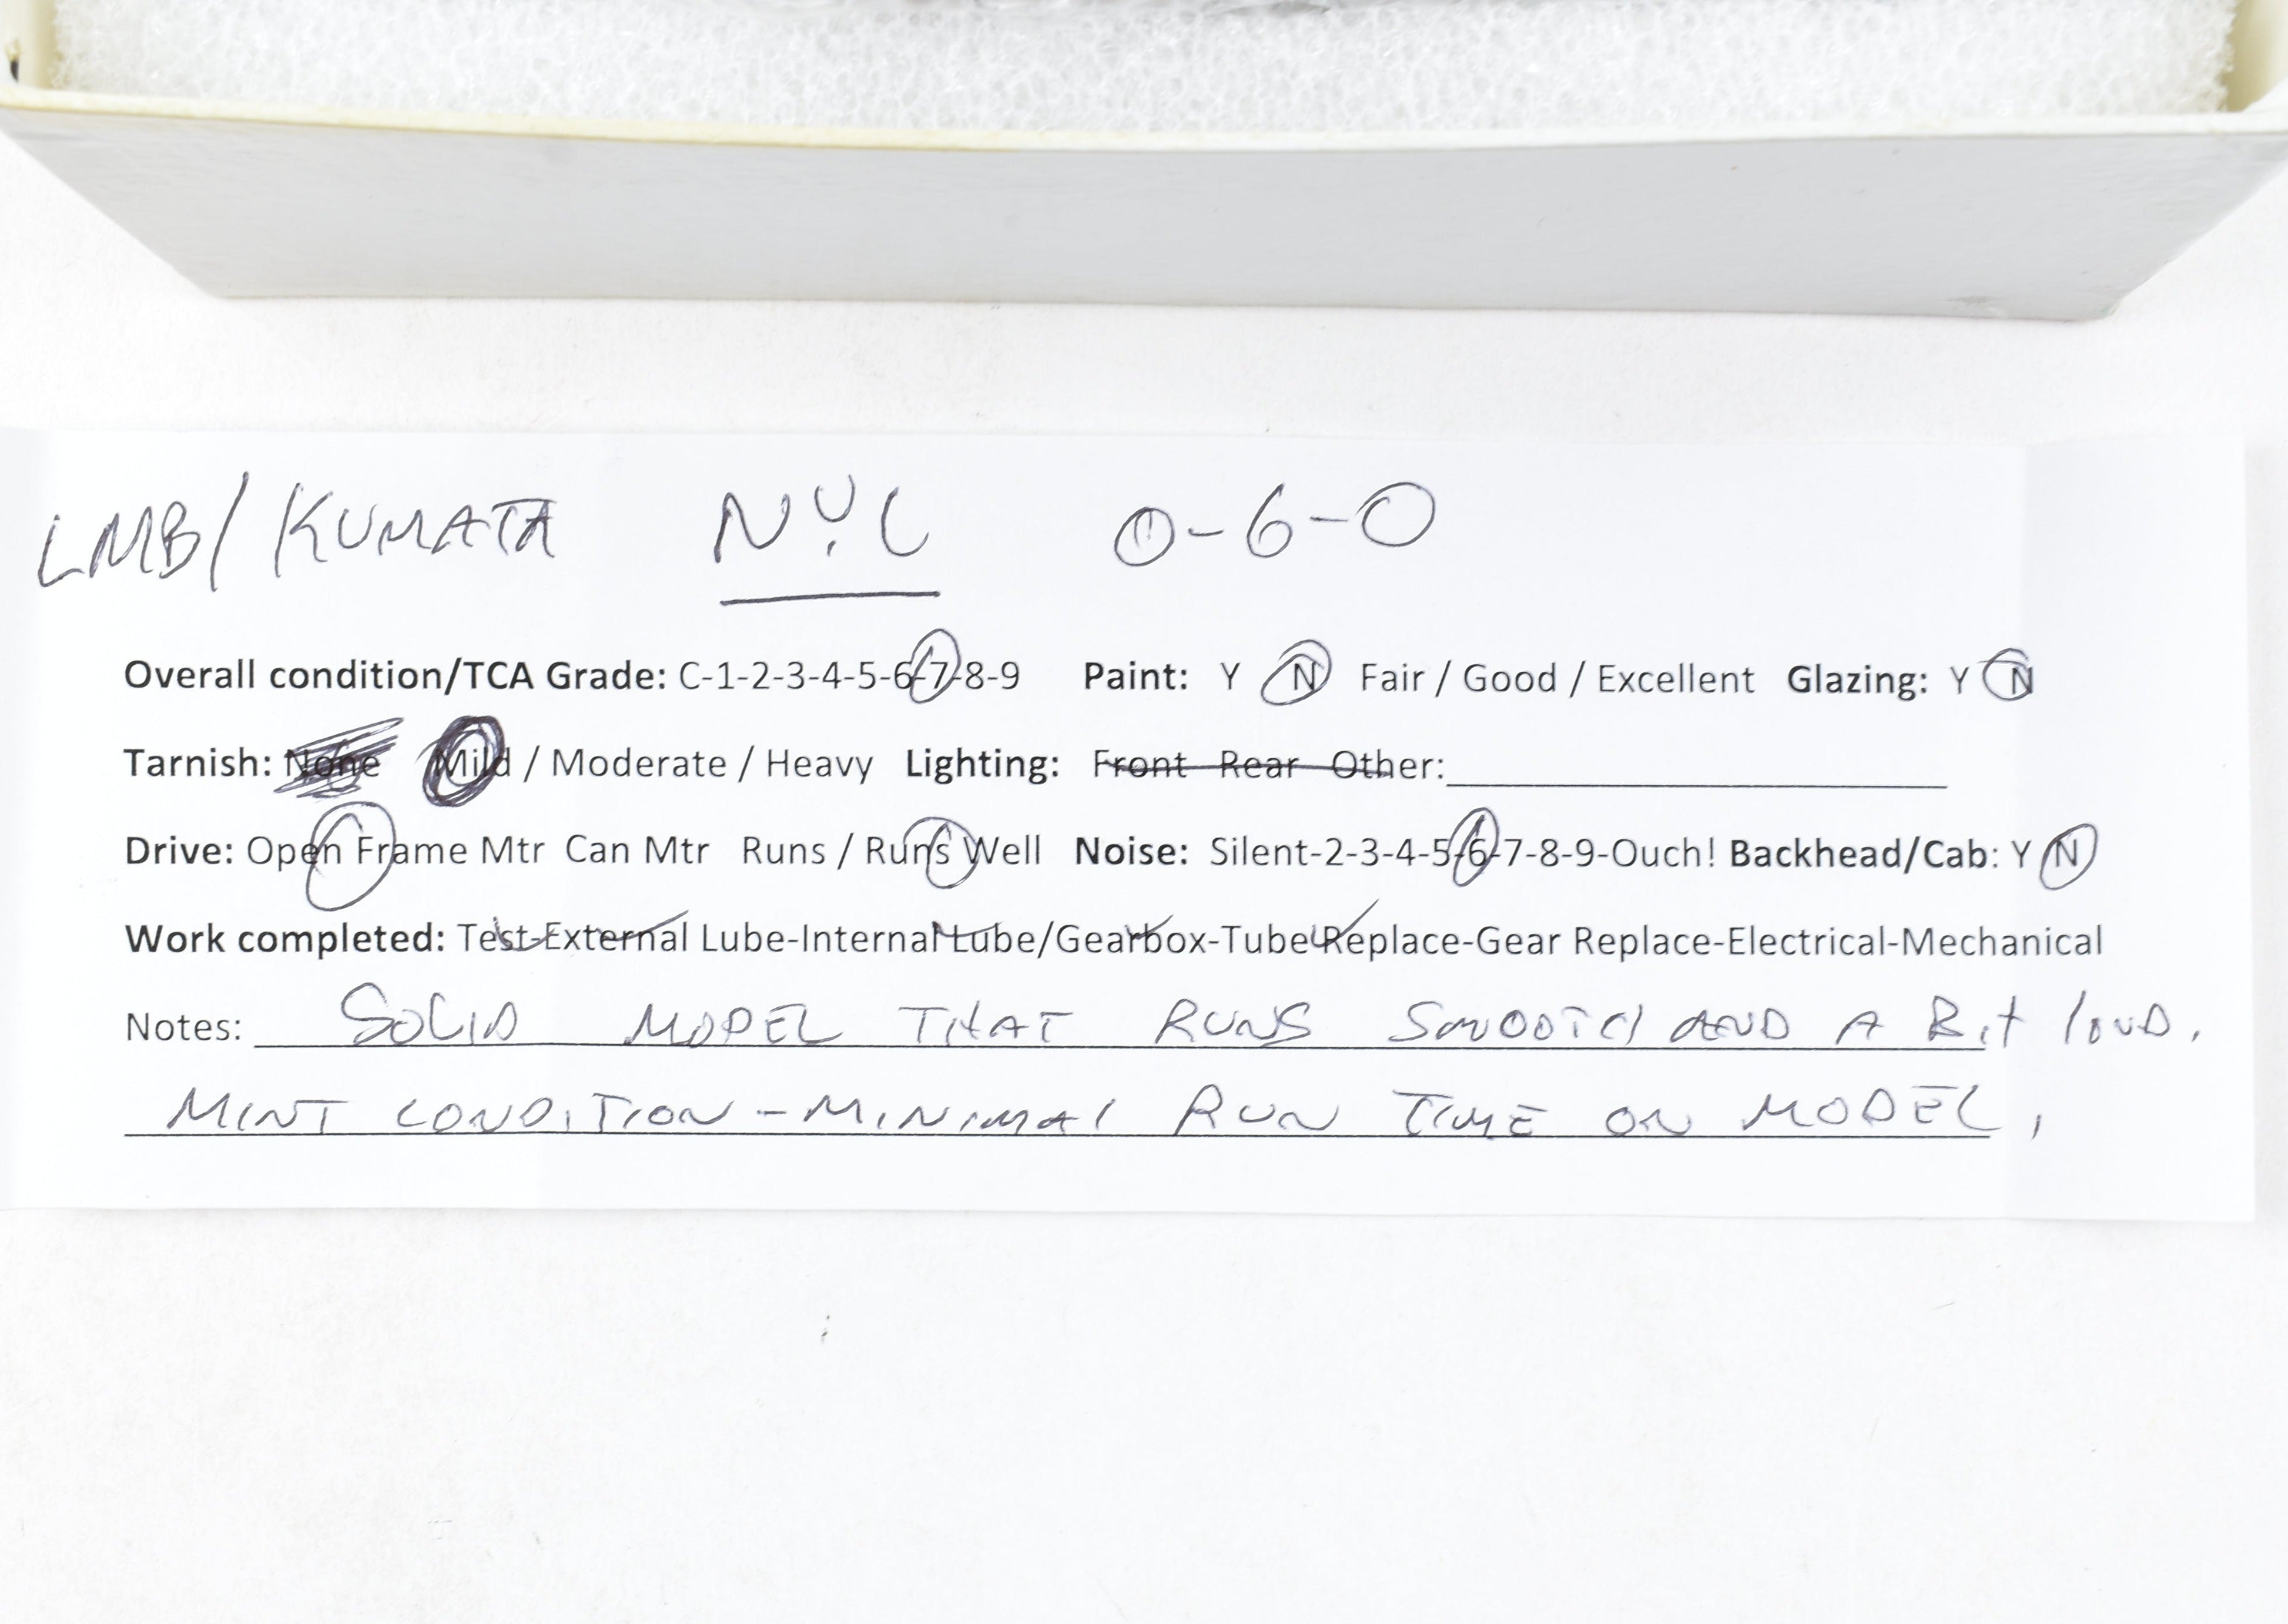 LMB/KUMATA NYC 0-6-0
Overall condition/TCA Grade: C-1-2-3-4-5-6-7-8-9 Paint: Y N Fair / Good / Excellent Glazing: Y N
Tarnish: None Mild / Moderate / Heavy Lighting: Front Rear Other:
Drive: Open Frame Mtr Can Mtr Runs / Runs Well Noise: Silent-2-3-4-5-6-7-8-9-Ouch! Backhead/Cab: Y N
Work completed: Test-External Lube-Internal Lube/Gearbox-Tube Replace-Gear Replace-Electrical-Mechanical
Notes: SOLID MODEL THAT RUNS SMOOTH AND A Bit loUD.
MINT CONDITION - MINIMAl RUN TIME ON MODEL.